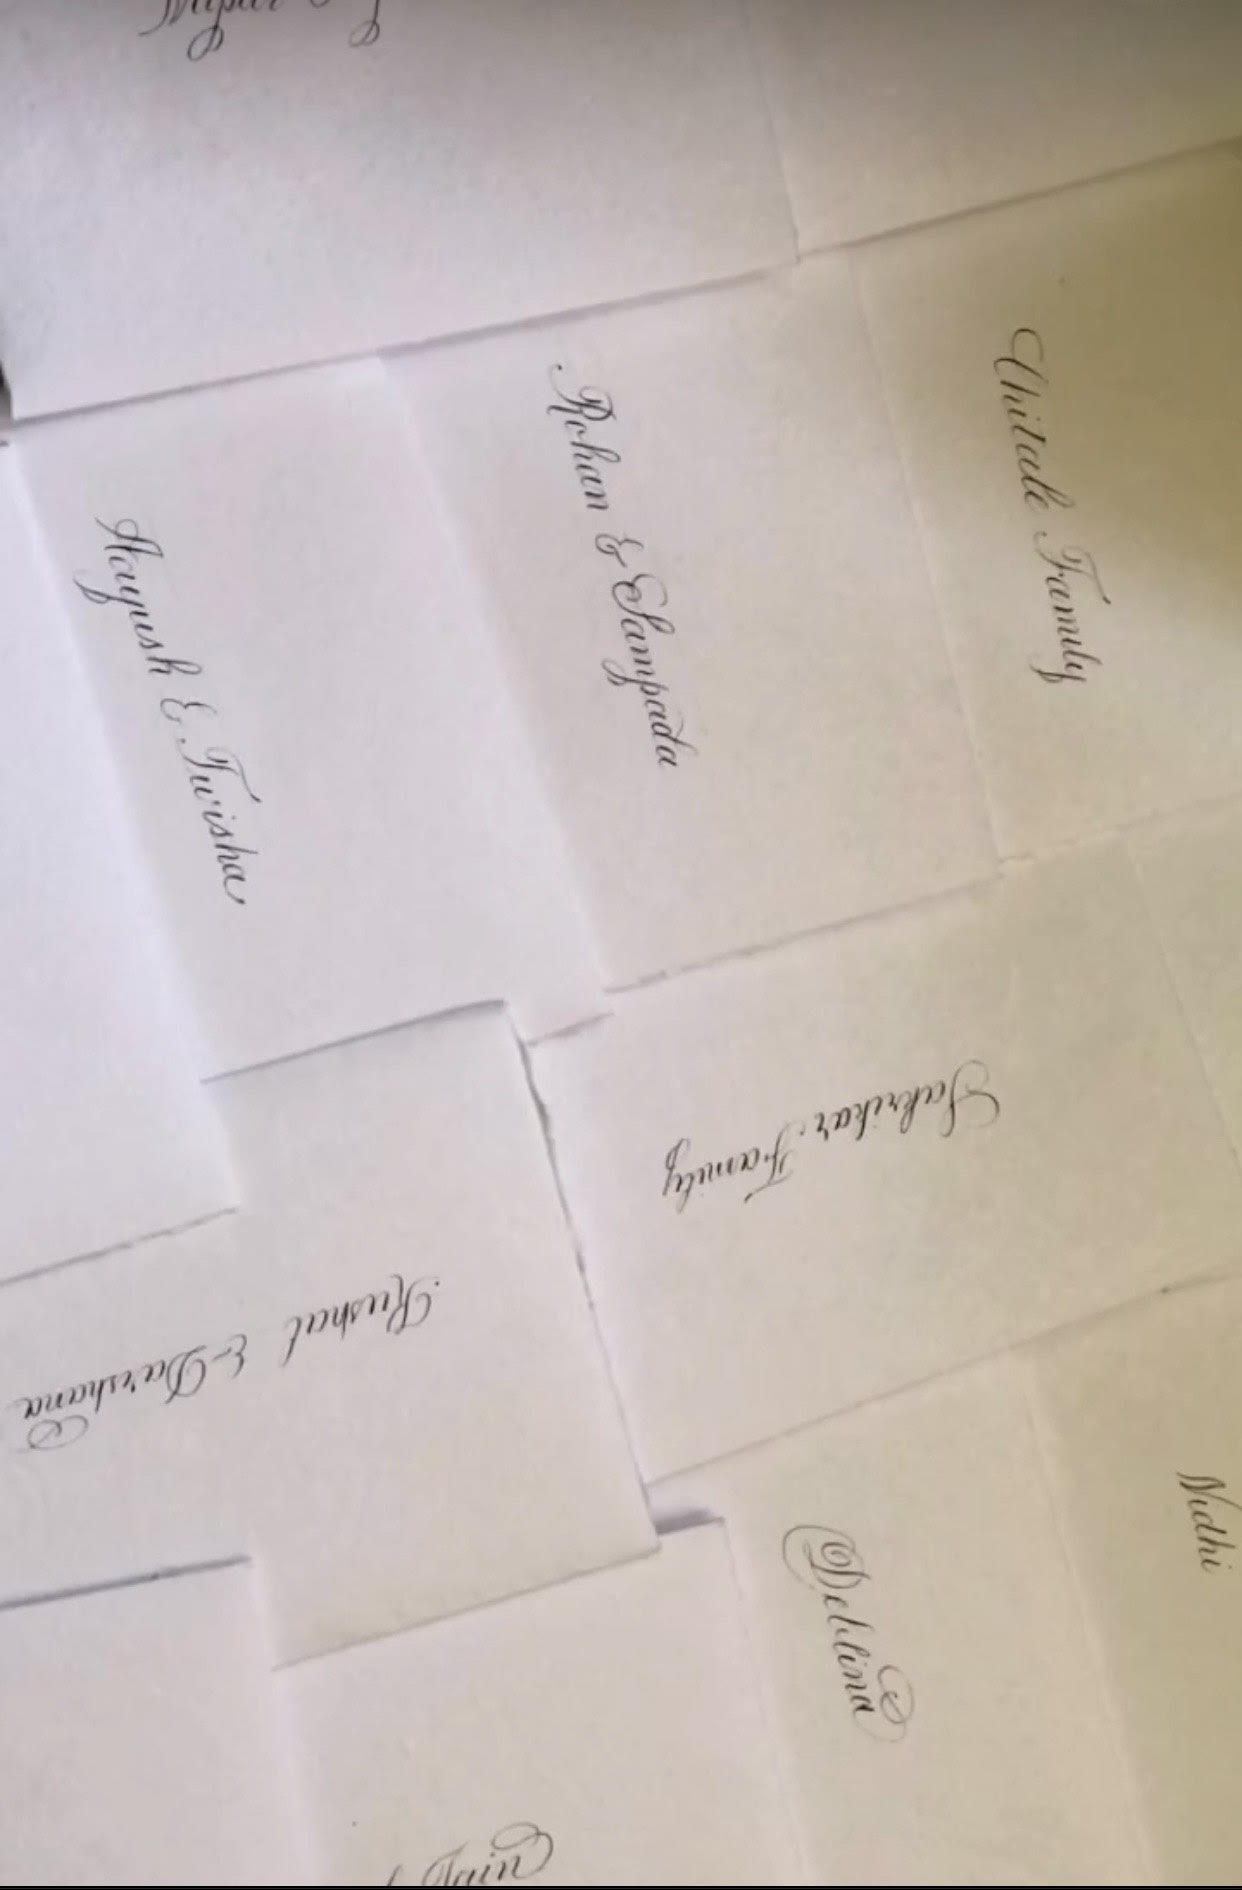 Chitale Family
Rohan & Sampada
Aayush & Twisha
Sakrikar Family
Kushal & Darshana
Nidhi
Deblina